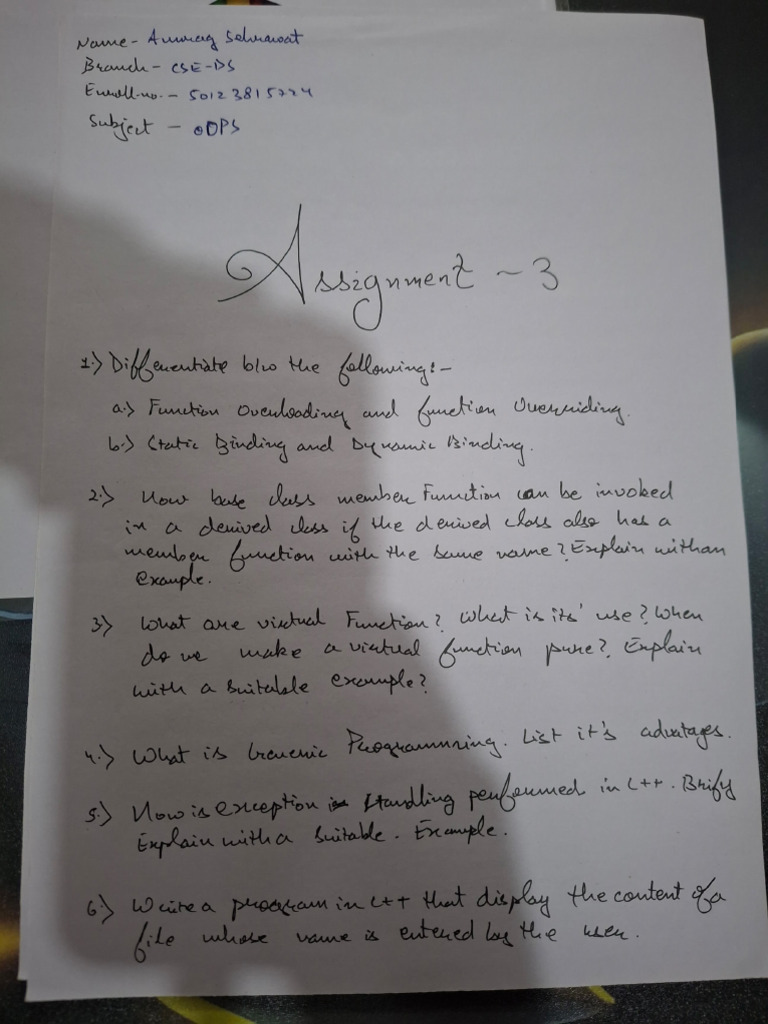 Name - Anurag Sehrawat
Branch - CSE-DS
Enroll-no. - 50123815724
Subject - OOPS
Assignment - 3
1.) Differentiate b/w the following:-
a.) Function Overloading and function Overriding.
b.) Static Binding and Dynamic Binding.
2.) How base class member Function can be invoked
in a derived class if the derived class also has a
member function with the same name? Explain with an
example.
3) What are virtual Function? What is its' use? When
do we make a virtual function pure? Explain
with a suitable example?
4.) What is Generic Programming. List it's advatages.
5.) How is exception Handling performed in C++. Brify
Explain with a suitable. Example.
6.) Write a program in C++ that display the content of a
file whose name is entered by the user.